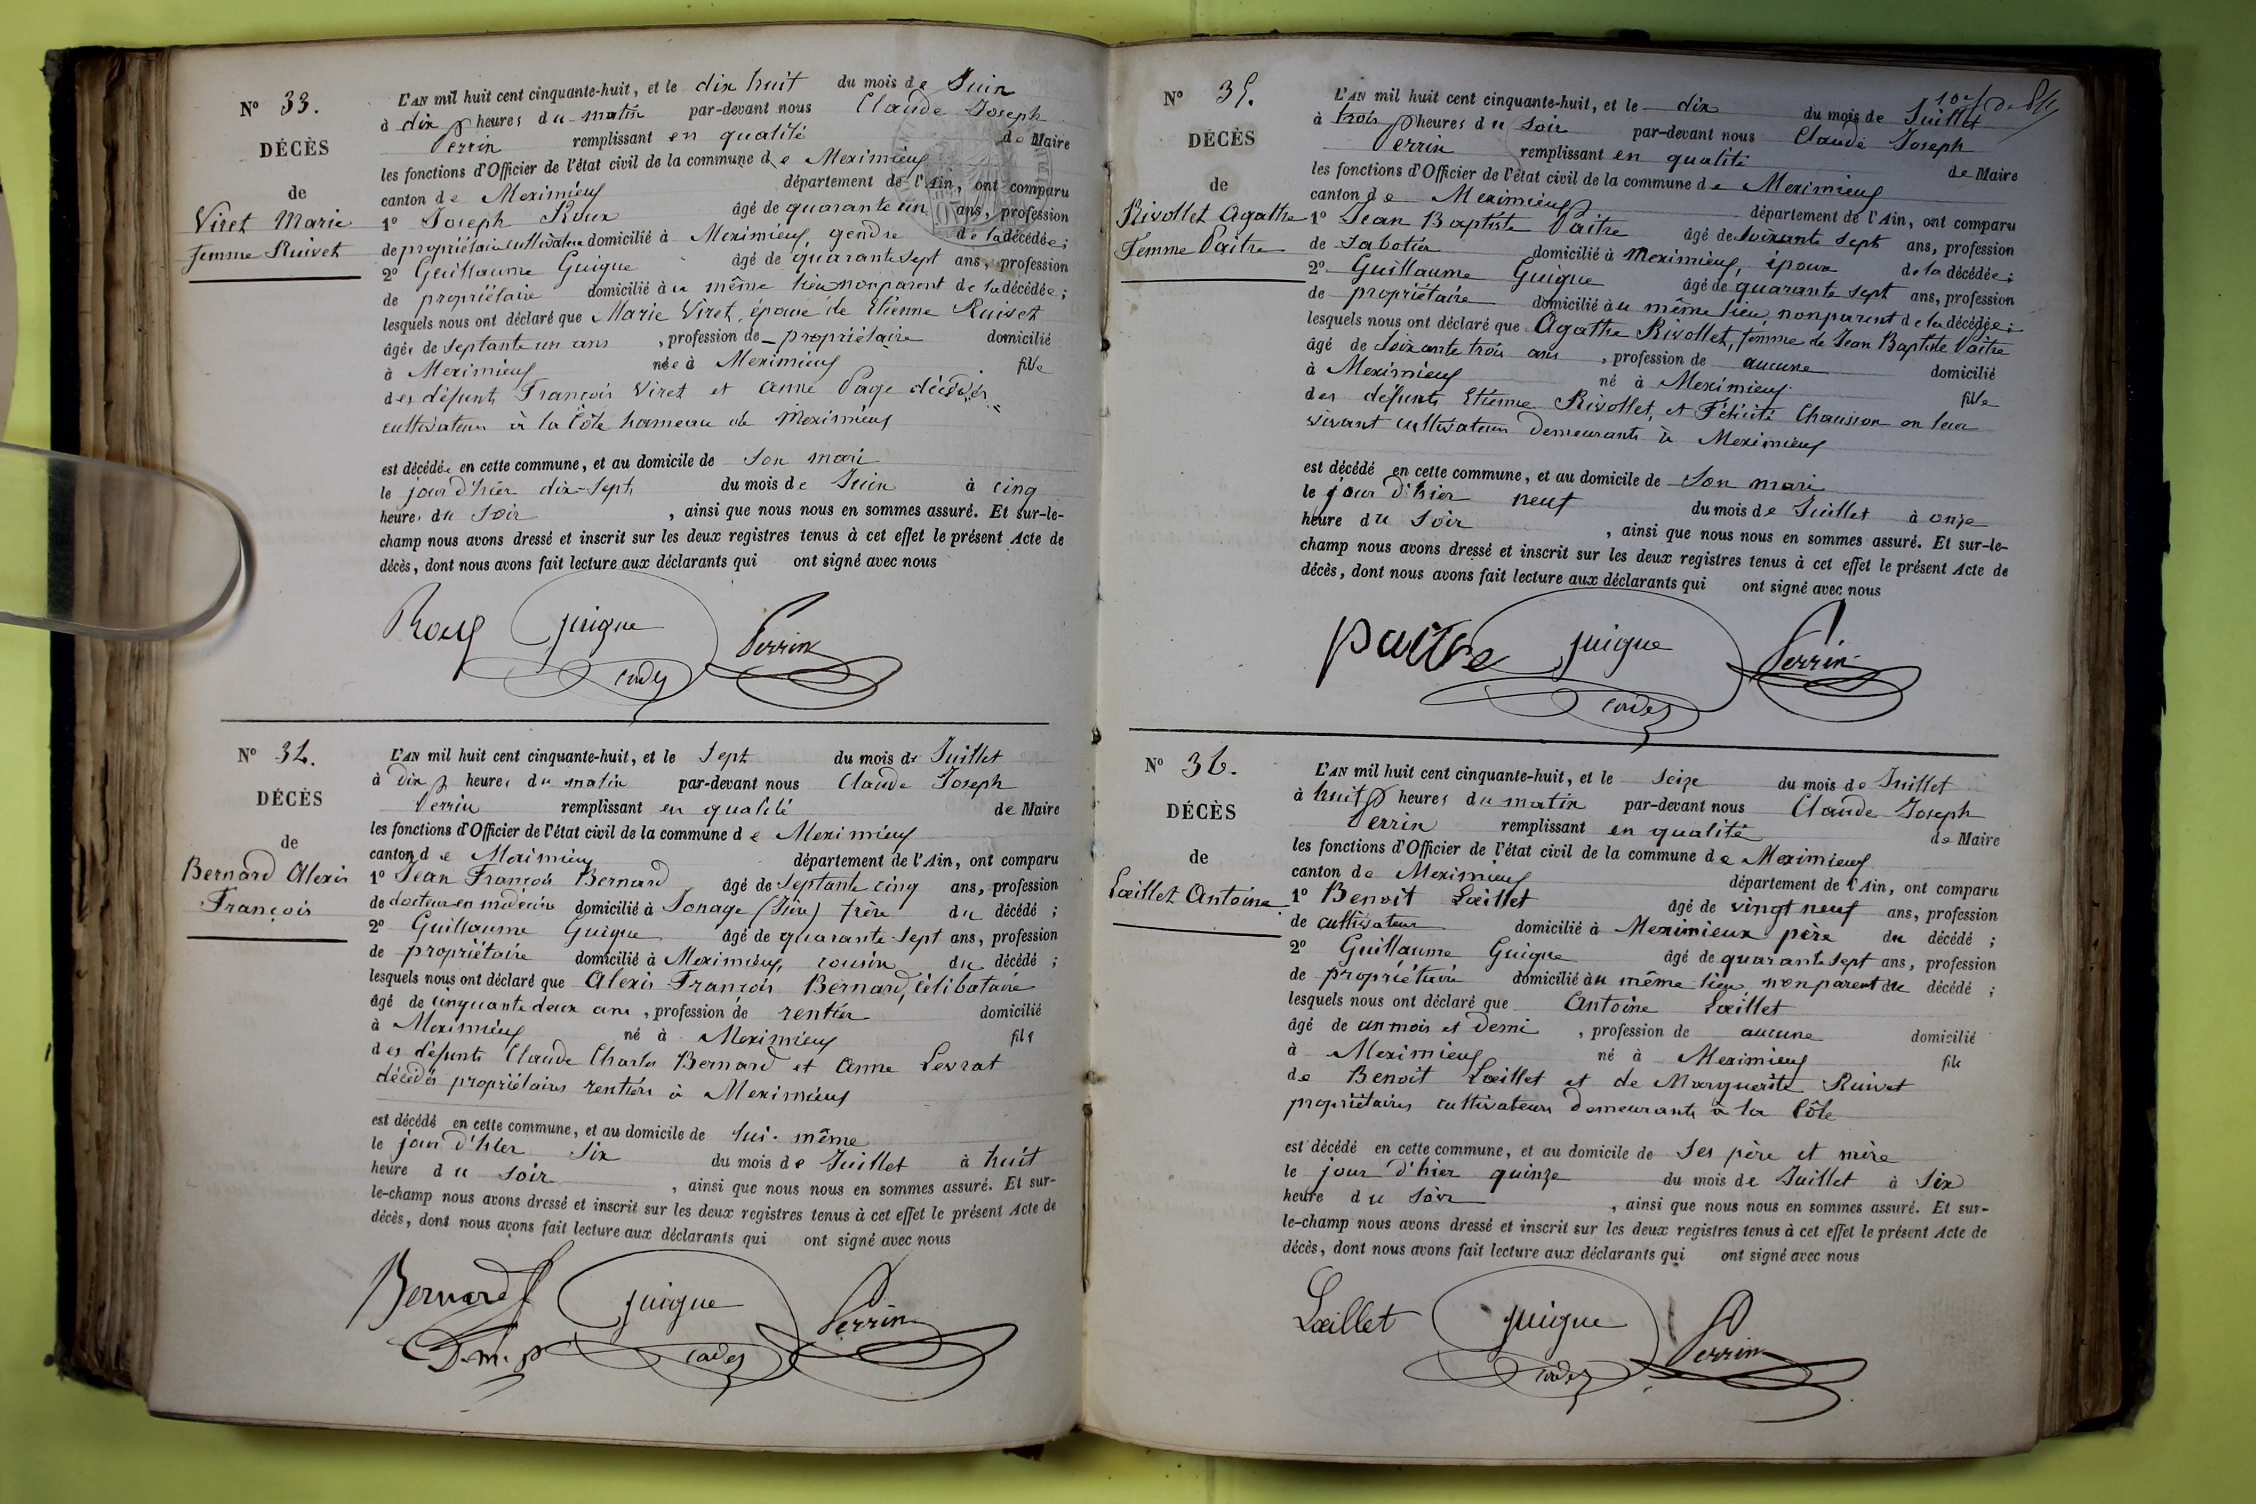 N° 33.
DÉCÈS
de
Viret Marie
femme Ruivet
L'AN mil huit cent cinquante-huit, et le dix huit du mois de Juin
à dix heures du matin par-devant nous Claude Joseph
Perrin remplissant en qualité de Maire
les fonctions d'Officier de l'état civil de la commune de Meximieux
canton de Meximieux département de l'Ain, ont comparu
1° Joseph Roux âgé de quarante un ans, profession
de propriétaire cultivateur domicilié à Meximieux, gendre de la décédée;
2° Guillaume Guigue âgé de quarante sept ans, profession
de propriétaire domicilié au même lieu non parent de la décédée;
lesquels nous ont déclaré que Marie Viret, épouse de Etienne Ruivet
âgée de septante un ans, profession de propriétaire domicilié
à Meximieux née à Meximieux fille
des défunts François Viret et Anne Page décédés
cultivateurs à la Côte hameau de Meximieux
est décédée en cette commune, et au domicile de son mari
le jour d'hier dix-sept du mois de Juin à cinq
heure du soir, ainsi que nous nous en sommes assuré. Et sur-le-
champ nous avons dressé et inscrit sur les deux registres tenus à cet effet le présent Acte de
décès, dont nous avons fait lecture aux déclarants qui ont signé avec nous
Roux Guigue Perrin
cadet
N° 34.
DÉCÈS
de
Bernard Alexis
François
L'AN mil huit cent cinquante-huit, et le sept du mois de Juillet
à dix heures du matin par-devant nous Claude Joseph
Perrin remplissant en qualité de Maire
les fonctions d'Officier de l'état civil de la commune de Meximieux
canton de Meximieux département de l'Ain, ont comparu
1° Jean François Bernard âgé de septante cinq ans, profession
de docteur en médecine domicilié à Sonage (Isère) frère du décédé;
2° Guillaume Guigue âgé de quarante-sept ans, profession
de propriétaire domicilié à Meximieux, cousin du décédé;
lesquels nous ont déclaré que Alexis François Bernard, célibataire
âgé de cinquante deux ans, profession de rentier domicilié
à Meximieux né à Meximieux fils
des défunts Claude Charles Bernard et Anne Levrat
décédés propriétaires rentiers à Meximieux
est décédé en cette commune, et au domicile de lui-même
le jour d'hier six du mois de Juillet à huit
heure du soir, ainsi que nous nous en sommes assuré. Et sur-
le-champ nous avons dressé et inscrit sur les deux registres tenus à cet effet le présent Acte de
décès, dont nous avons fait lecture aux déclarants qui ont signé avec nous
Bernard Guigue Perrin
D.m.p cadet
N° 35.
DÉCÈS
de
Rivollet Agathe
Femme Paitre
L'AN mil huit cent cinquante-huit, et le dix du mois de Juillet
à trois heures du soir par-devant nous Claude Joseph
Perrin remplissant en qualité de Maire
les fonctions d'Officier de l'état civil de la commune de Meximieux
canton de Meximieux département de l'Ain, ont comparu
1° Jean Baptiste Paitre âgé de soixante sept ans, profession
de sabotier domicilié à Meximieux, époux de la décédée;
2° Guillaume Guigue âgé de quarante sept ans, profession
de propriétaire domicilié au même lieu, non parent de la décédée;
lesquels nous ont déclaré que Agathe Rivollet, femme de Jean Baptiste Paitre
âgé de soixante trois ans, profession de aucune domicilié
à Meximieux né à Meximieux fille
des défunts Etienne Rivollet, et Félicité Chausson en leur
vivant cultivateurs demeurants à Meximieux
est décédé en cette commune, et au domicile de son mari
le jour d'hier neuf du mois de Juillet à onze
heure du soir, ainsi que nous nous en sommes assuré. Et sur-le-
champ nous avons dressé et inscrit sur les deux registres tenus à cet effet le présent Acte de
décès, dont nous avons fait lecture aux déclarants qui ont signé avec nous
paitre Guigue Perrin
cadet
N° 36.
DÉCÈS
de
Lœillet Antoine
L'AN mil huit cent cinquante-huit, et le seize du mois de Juillet
à huit heures du matin par-devant nous Claude Joseph
Perrin remplissant en qualité de Maire
les fonctions d'Officier de l'état civil de la commune de Meximieux
canton de Meximieux département de l'Ain, ont comparu
1° Benoit Lœillet âgé de vingt neuf ans, profession
de cultivateur domicilié à Meximieux père du décédé;
2° Guillaume Guigue âgé de quarante sept ans, profession
de propriétaire domicilié au même lieu, non parent du décédé;
lesquels nous ont déclaré que Antoine Lœillet
âgé de un mois et demi, profession de aucune domicilié
à Meximieux né à Meximieux fils
de Benoit Lœillet et de Marguerite Ruivet
propriétaires cultivateurs demeurants à la Côte
est décédé en cette commune, et au domicile de ses père et mère
le jour d'hier quinze du mois de Juillet à six
heure du soir, ainsi que nous nous en sommes assuré. Et sur-
le-champ nous avons dressé et inscrit sur les deux registres tenus à cet effet le présent Acte de
décès, dont nous avons fait lecture aux déclarants qui ont signé avec nous
Lœillet Guigue Perrin
cadet